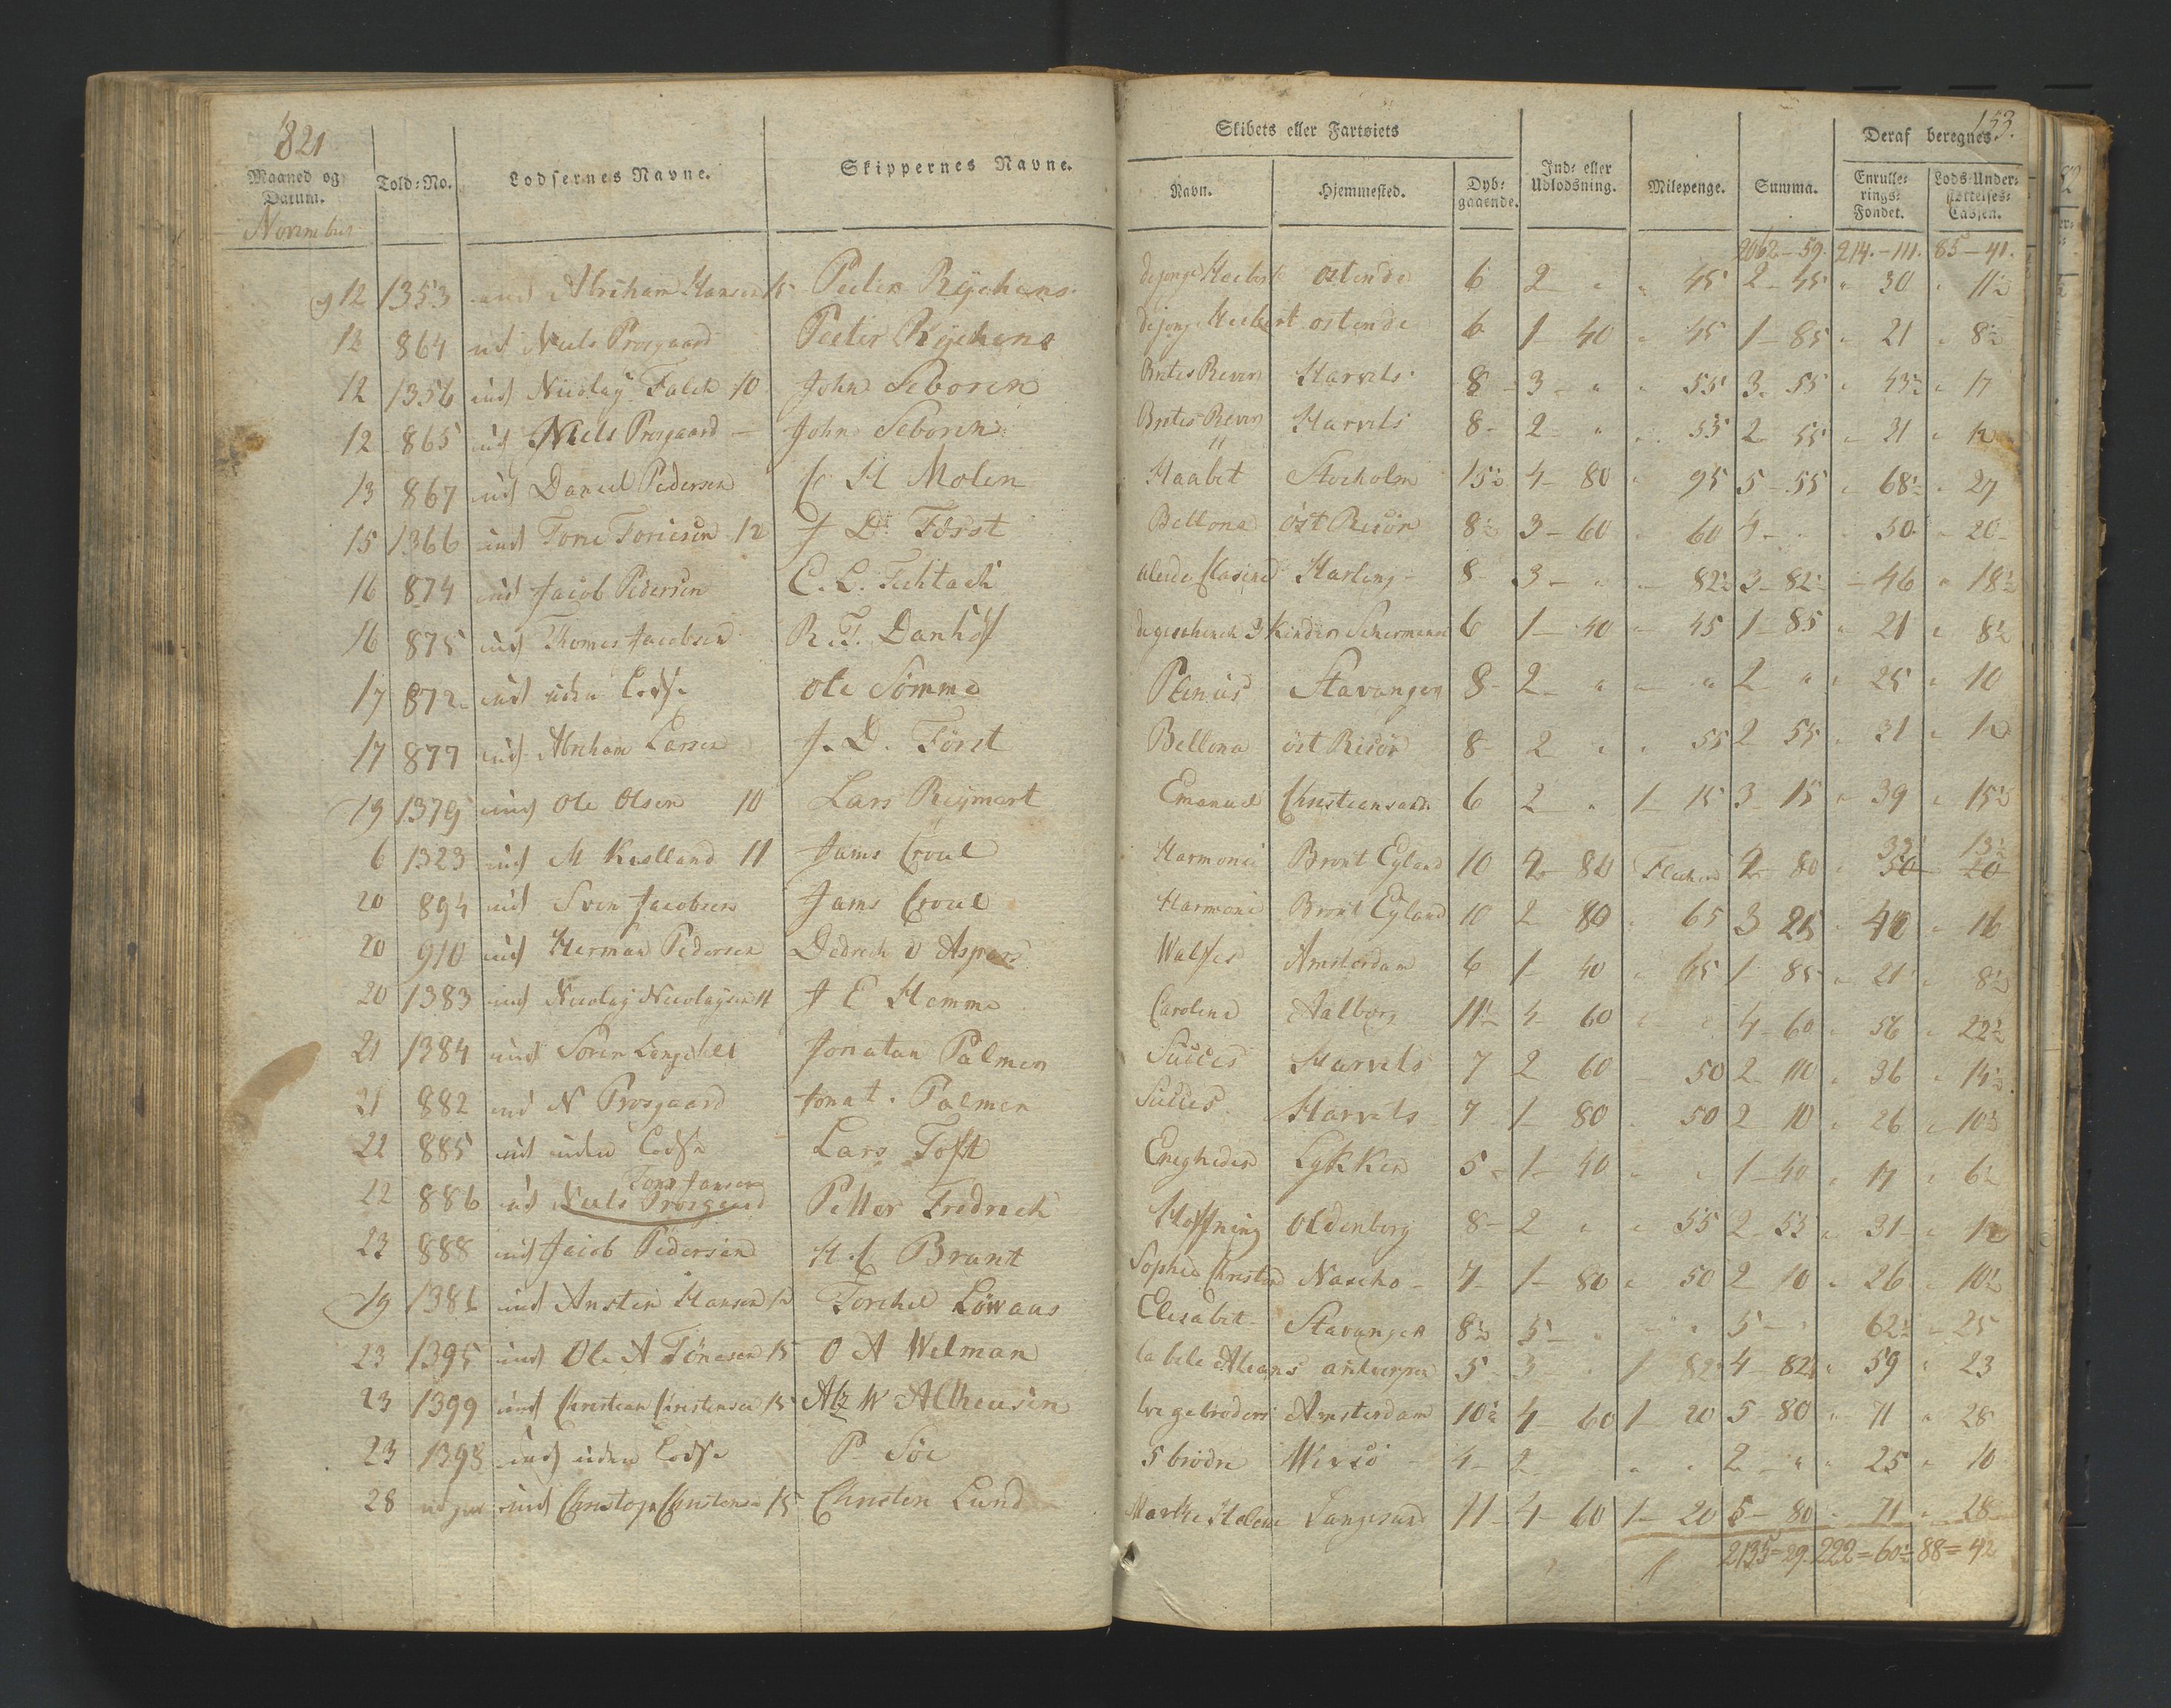 821
153.
Maaned og Datum. Told-No. Lodsernes Navne. Skippernes Navne. Skibets eller Fartøiets Navn. Hjemmested. Dybgaaende. Ind- eller Udlodsning. Milepenge. Summa. Deraf beregnes. Enrullerings-Fondet. Lods-Understøttelses-Cassen.
November
2062-59. 214.-111. 85-41.
12 1353 ind Abraham Hansen 15 Peeter Rÿchens de jonge Heebert ostende 6 2 " " 45 2-45 " 30 " 11½
12 864 ud Niels Prosgaard Peeter Rÿchens de jonge Heebert ostende 6 1-40 " 45 1-85 " 21 " 8½
12 1356 ind Nicolaÿ Falck 10 John Seboren Harvits 8 3 " " 55 3 55 " 43½ " 17
12 865 ud Niels Prosgaard John Seboren Harvits 8 2 " " 55 2 55 " 31 " 12
13 867 ud Daniel Pedersen C H Molin Haabet Stocholm 15½ 4-80 " 95 5-55 " 68½ " 27
15 1366 ind Tore Toriesen 12 J D Först Bellona öst Risör 8½ 3-60 " 60 4 - " 50 " 20
16 874 ud Jacob Pedersen Harling 8 3 - " 82½ 3-82½ - 46 " 18½
16 875 ud Thomes Jacobsen R. T. Danhöf 6 1-40 " 45 1-85 " 21 " 8½
17 872 ud uden Lodse ole Sömme Stavanger 8 2 " " 2 " " 25 " 10
17 877 ud Abraham Larsen J. D. Först Bellona öst Risör 8 2 " " 55 2 55 " 31 " 12
19 1379 ind Ole Olsen 10 Lars Reÿmert Emanuel Christiansand 6 2 " 1-15 3-15 " 39 " 15½
6 1323 ind M Kielland 11 Jams Croul Harmonie Eyland 10 2-80 2-80 " 33 50 13½ 20
20 894 ud Sven Jacobsen Jams Croul Harmonie Eyland 10 2 80 " 65 3 25 " 40 " 16
20 910 ud Herman Pedersen Didrich Aspers Amsterdam 6 1-40 " 45 1 85 " 21 " 8½
20 1383 ind Nicolaÿ Nicolaysen 11 J E Hemme Caroline Aalborg 11½ 4 60 " " 4-60 " 56 " 22½
21 1384 ind Sören Jonatan Palmer Succes Harvits 7 2 60 50 2 110 " 36 " 14½
21 882 ud N Prosgaard Jonat. Palmer Succes Harvits 7 1 80 50 2 10 " 26 " 10½
22 885 ud uden Lodse Lars Toft Enigheden Lykken 5 1-40 " " 1-40 " 17 " 6½
22 886 ud Niels Prosgaard Tore Jansen Petter Fredrich Hoffning Oldenborg 8 2 " " 55 2-55 " 31 " 12
23 888 ud Jacob Pedersen H. C Brunt Sophie 7 1-80 " 50 2 10 " 26 " 10½
19 1381 ind Austen Hansen 12 Torchel Elisabet Stavanger 8½ 5 - " " 5 - " 62½ " 25
23 1395 ind Ole A Tönesen 15 O A Welman la bele Alians antverpen 5 3 " 1 82½ 4-82½ " 59 " 23
23 1399 ind Christian Christensen 15 W Altheusen gebroders Amsterdam 10½ 4-60 1 20 5-80 " 71 " 28
23 1398 ind uden Lodse P. Söe 5 brödre 4 2 " " 2 " " 25 " 10
28 ind Christensen 15 Christen Lund Marthe Helene Langesund 11 4-60 1-20 5-80 " 71 " 28
2135=29. 222=60½ 88=42